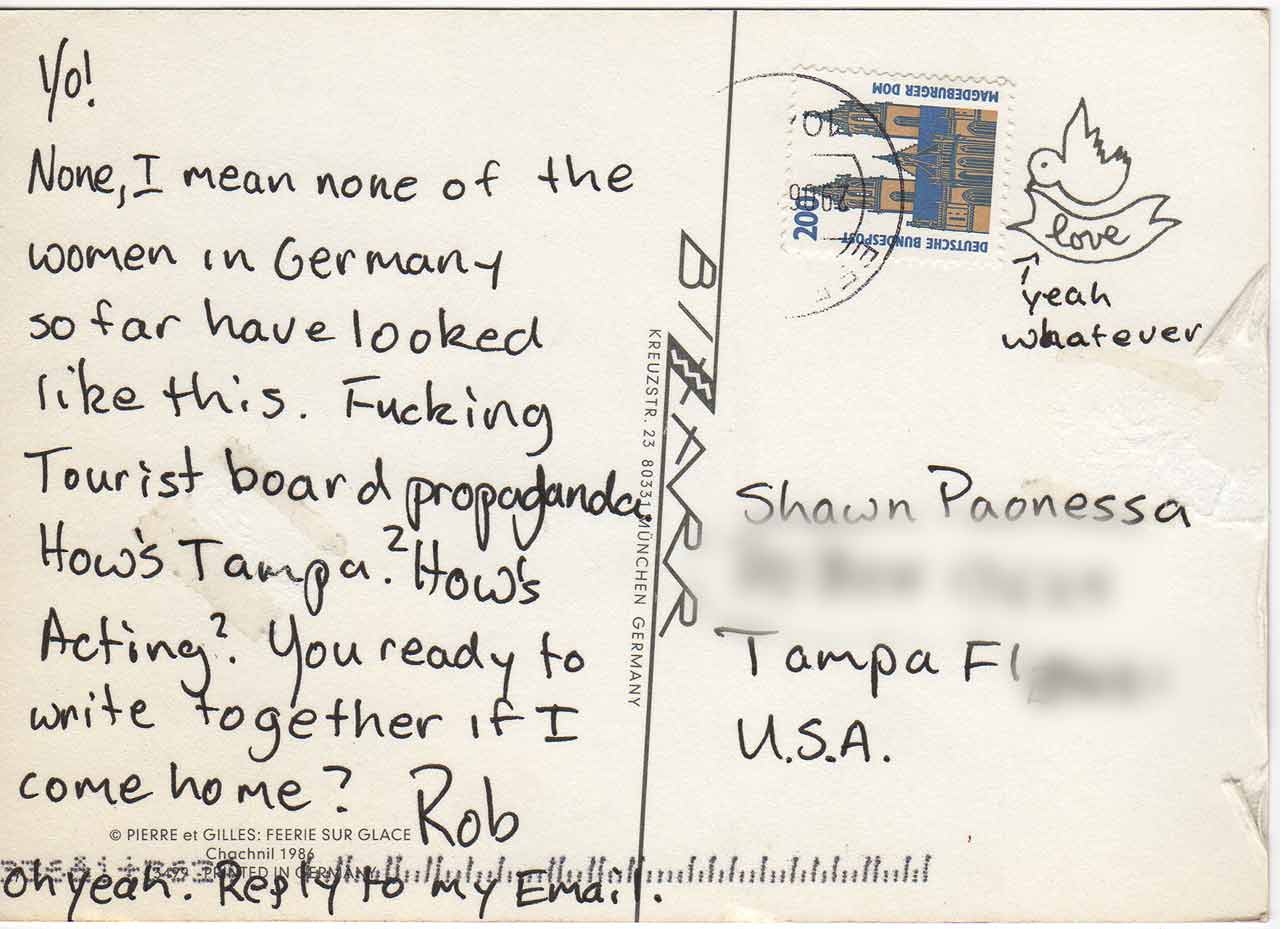 Yo!
None, I mean none of the
women in Germany
so far have looked
like this. Fucking
Tourist board propaganda
How's Tampa? How's
Acting? You ready to
write together if I
come home? Rob
© PIERRE et GILLES: FEERIE SUR GLACE
Chachnil 1986
PRINTED IN GERMANY
Oh yeah. Reply to my Email.
BIZARR
KREUZSTR. 23 80331 MÜNCHEN GERMANY
MAGDEBURGER DOM
200
DEUTSCHE BUNDESPOST
love
yeah
whatever
Shawn Paonessa
Tampa Fl
U.S.A.